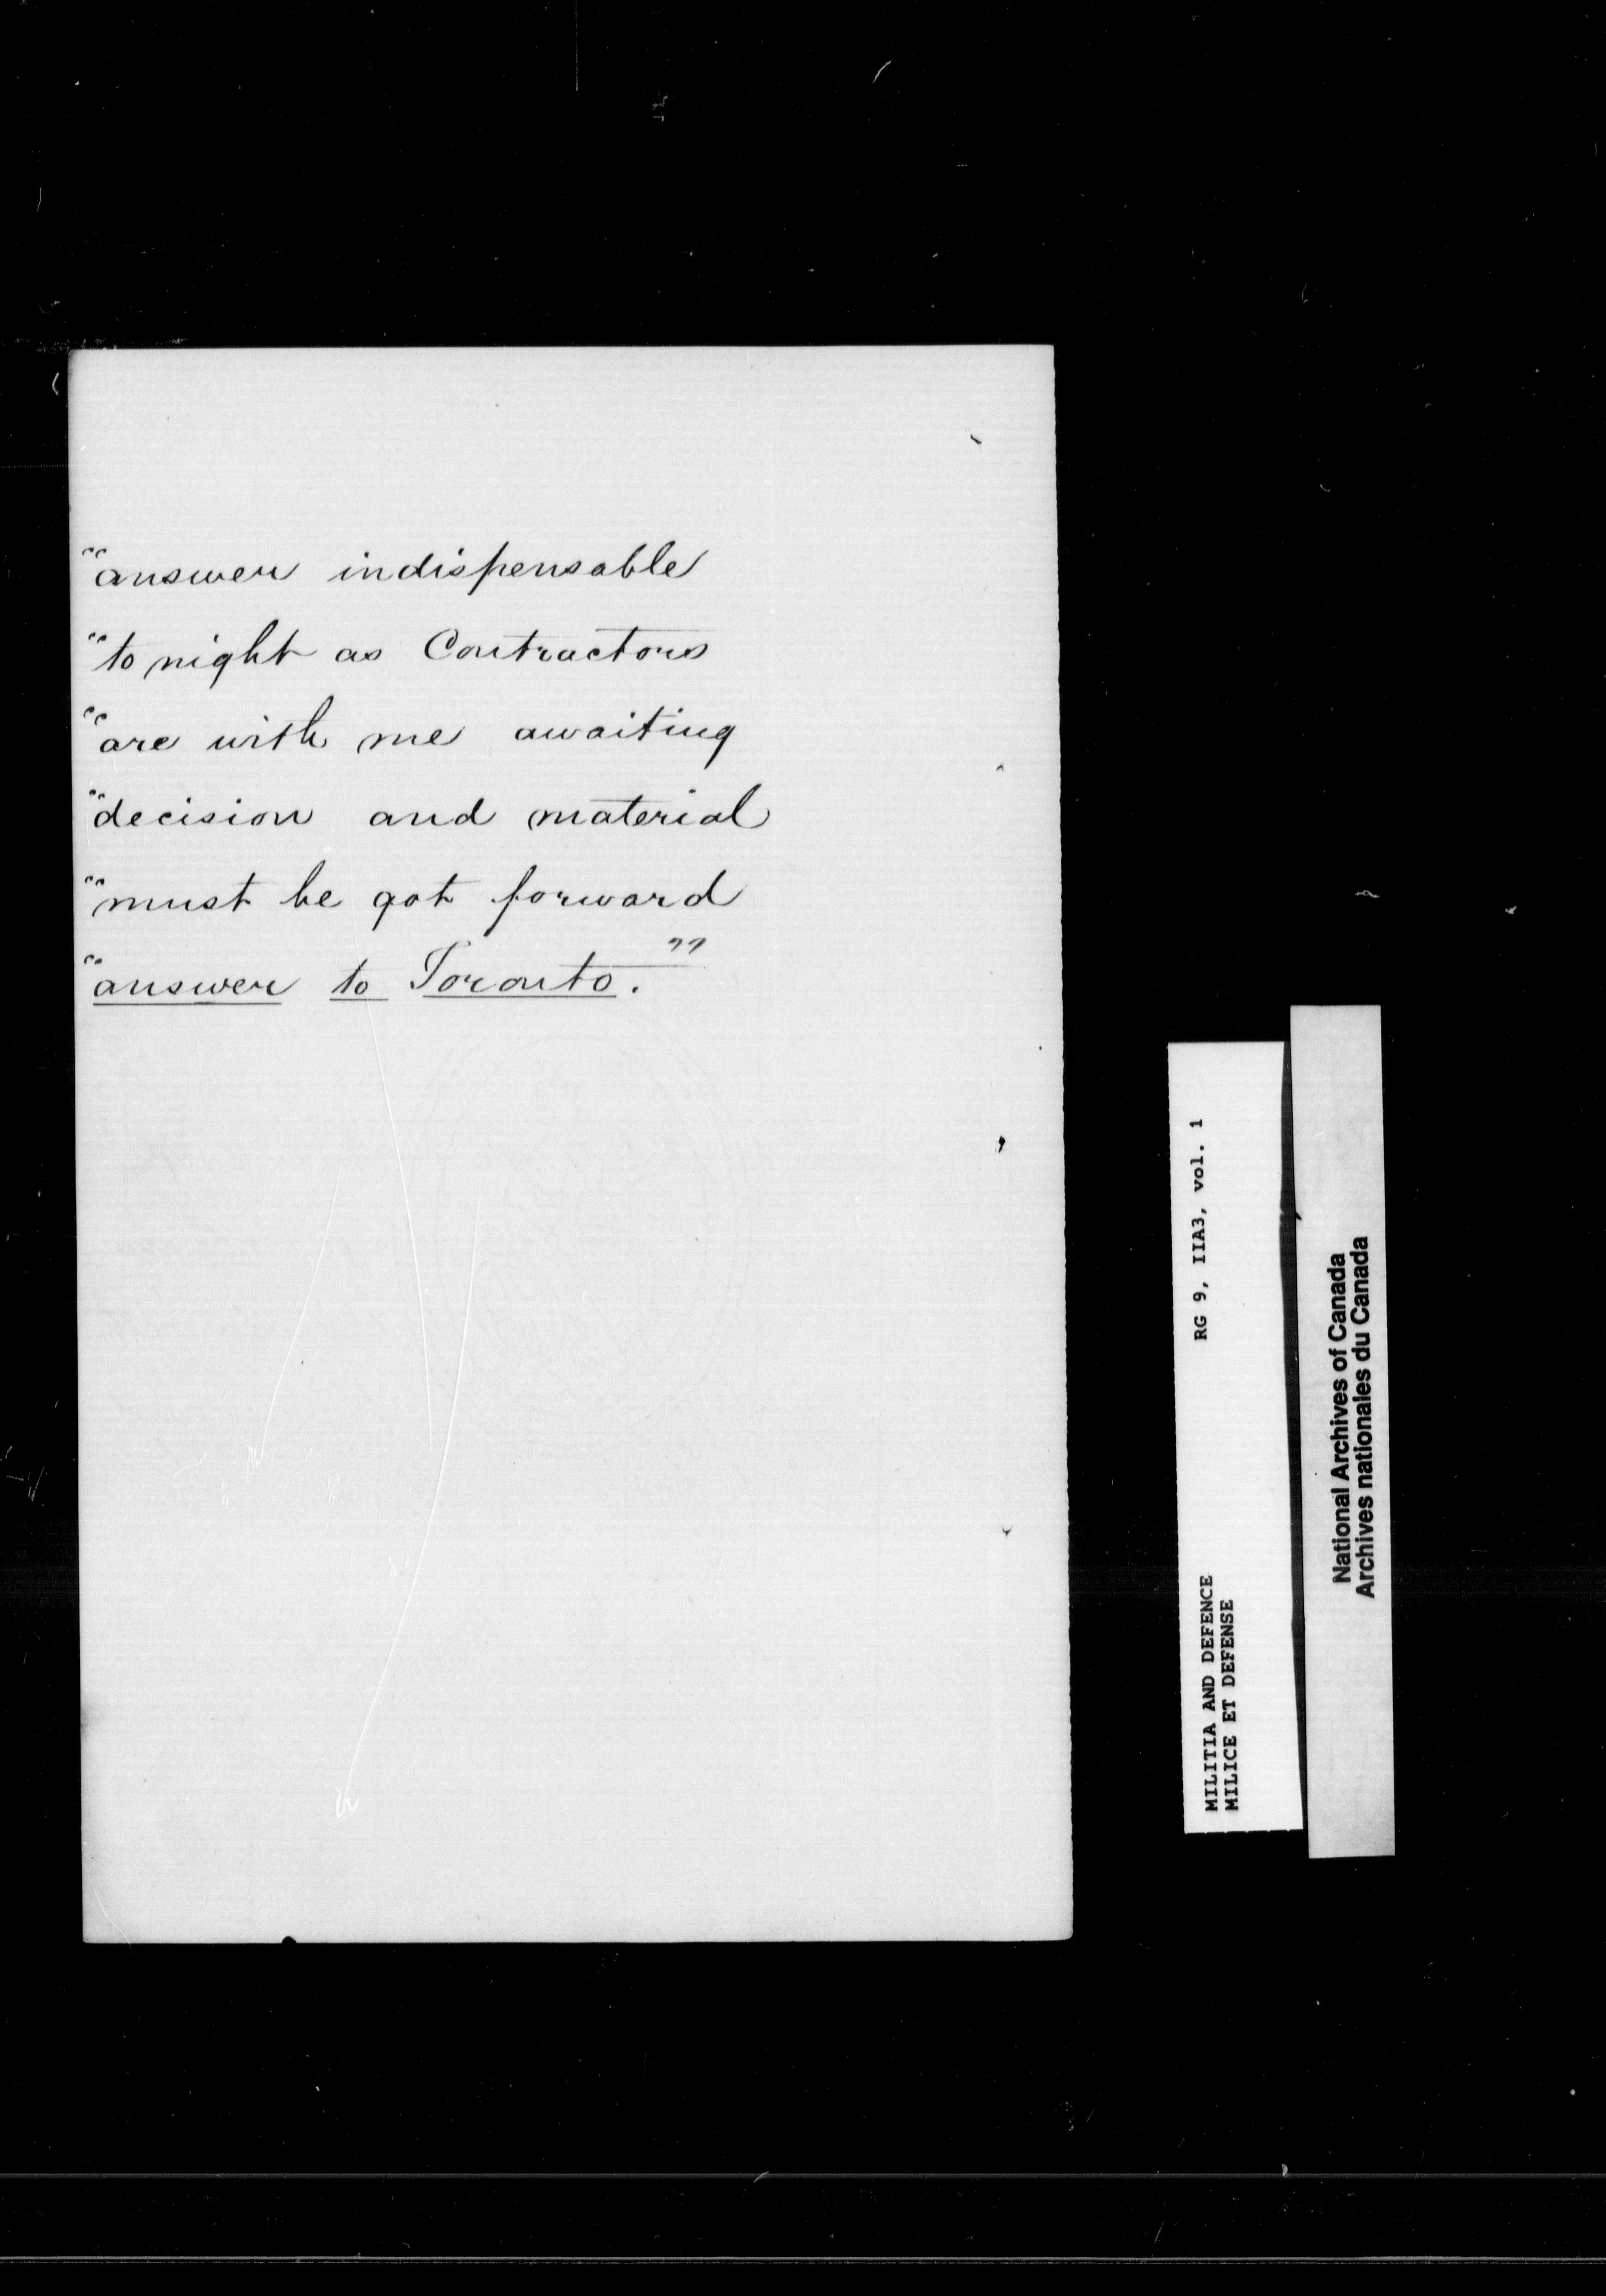 "answer indispensable
"to night as Contractors
"are with me awaiting
"decision and material
"must be got forward
"answer to Toronto."
RG 9, IIA3, vol. 1
MILITIA AND DEFENCE
MILICE ET DEFENSE
National Archives of Canada
Archives nationales du Canada